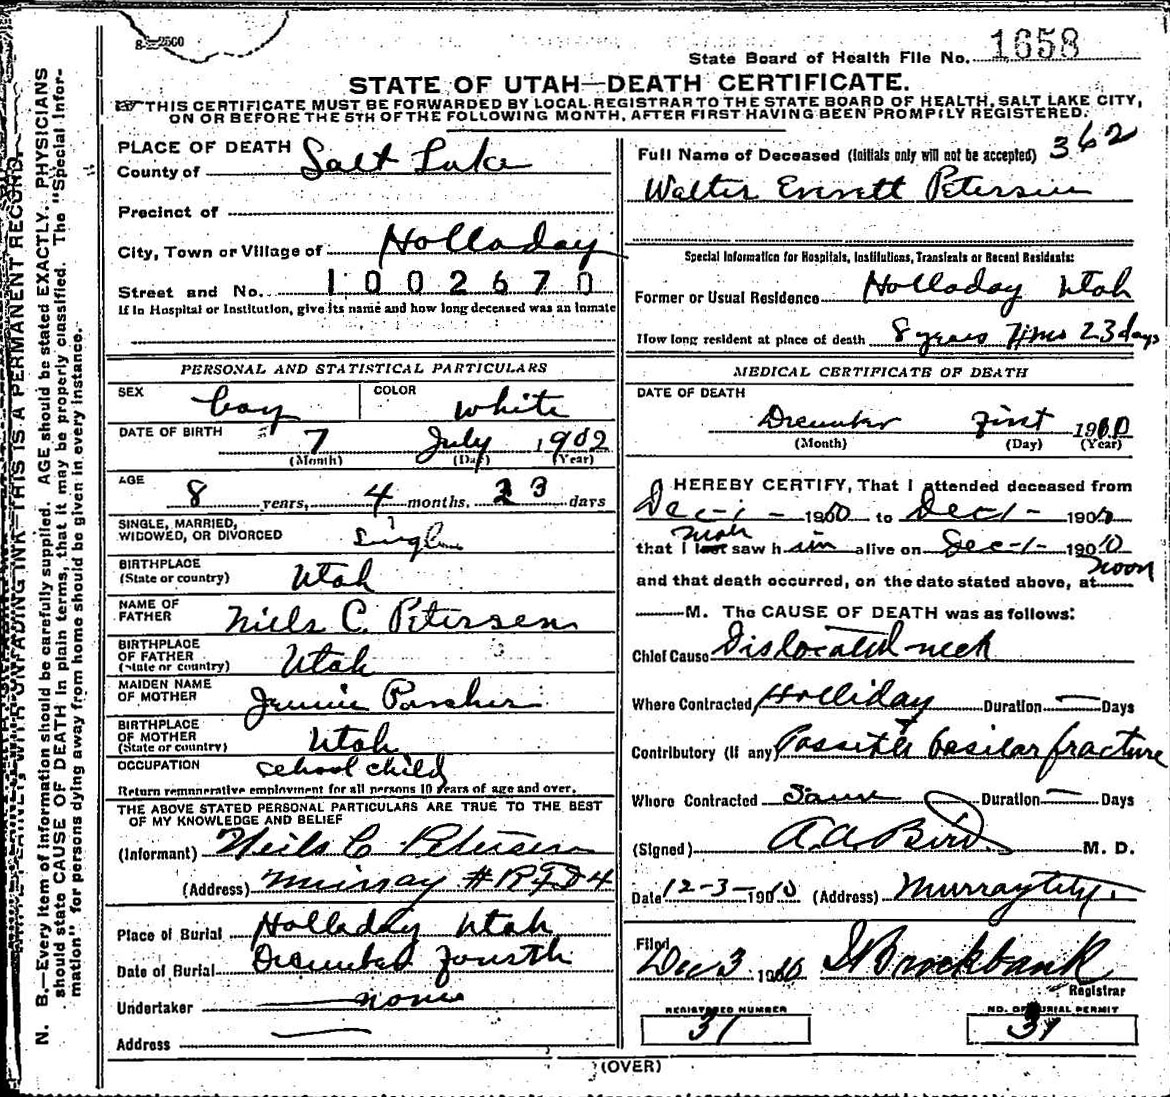 8-2560
State Board of Health File No. 1658
STATE OF UTAH—DEATH CERTIFICATE.
THIS CERTIFICATE MUST BE FORWARDED BY LOCAL REGISTRAR TO THE STATE BOARD OF HEALTH, SALT LAKE CITY,
ON OR BEFORE THE 5TH OF THE FOLLOWING MONTH, AFTER FIRST HAVING BEEN PROMPTLY REGISTERED.
PLACE OF DEATH
County of Salt Lake
Precinct of
City, Town or Village of Holladay
Street and No. 1002670
If in Hospital or Institution, give its name and how long deceased was an inmate
PERSONAL AND STATISTICAL PARTICULARS
SEX boy COLOR white
DATE OF BIRTH 7 July 1902
(Month) (Day) (Year)
AGE 8 years, 4 months, 23 days
SINGLE, MARRIED,
WIDOWED, OR DIVORCED Single
BIRTHPLACE
(State or country) Utah
NAME OF
FATHER Niels C. Petersen
BIRTHPLACE
OF FATHER
(State or country) Utah
MAIDEN NAME
OF MOTHER Jennie
BIRTHPLACE
OF MOTHER
(State or country) Utah
OCCUPATION school child
Return remunerative employment for all persons 10 years of age and over.
THE ABOVE STATED PERSONAL PARTICULARS ARE TRUE TO THE BEST
OF MY KNOWLEDGE AND BELIEF
(Informant) Neils C Petersen
(Address) Murray # RFD 4
Place of Burial Holladay Utah
Date of Burial December fourth
Undertaker none
Address
362
Full Name of Deceased (Initials only will not be accepted)
Walter Everett Petersen
Special Information for Hospitals, Institutions, Transients or Recent Residents:
Former or Usual Residence Holladay Utah
How long resident at place of death 8 years 4 mo 23 days
MEDICAL CERTIFICATE OF DEATH
DATE OF DEATH
December first 1910
(Month) (Day) (Year)
I HEREBY CERTIFY, That I attended deceased from
Dec-1- 1910 to Dec 1- 1910
that I last saw him alive on Dec-1- 1910
and that death occurred, on the date stated above, at noon
M. The CAUSE OF DEATH was as follows:
Chief Cause Dislocated neck
Where Contracted Holliday Duration — Days
Contributory (If any) Possible basilar fracture
Where Contracted Same Duration — Days
(Signed) A A Bird M. D.
Date 12-3-1910 (Address) Murray City.
Filed Dec 3 1910 Brockbank
Registrar
REGISTERED NUMBER NO. OF BURIAL PERMIT
31 31
(OVER)
N. B.—Every item of information should be carefully supplied. AGE should be stated EXACTLY. PHYSICIANS
should state CAUSE OF DEATH in plain terms, that it may be properly classified. The "Special Infor-
mation" for persons dying away from home should be given in every instance.
THIS IS A PERMANENT RECORD